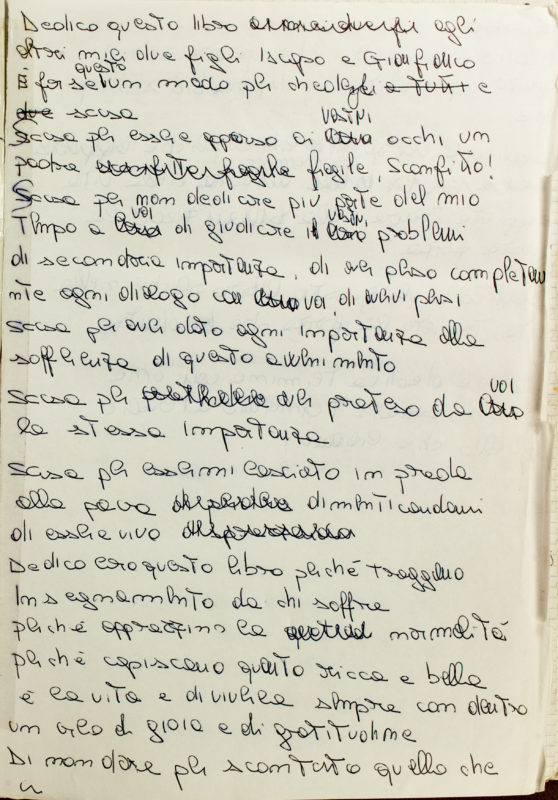 Dedico questo libro agli
altri miei due figli Iacopo e Gianfranco
È forse questo un modo per chiedergli a tutti e
due scusa
Scusa per essere apparso ai vostri occhi un
padre fragile, sconfitto!
Scusa per non dedicare più parte del mio
tempo a voi di giudicare i vostri problemi
di secondaria importanza, di aver perso completame
nte ogni dialogo con voi, di avervi persi
scusa per aver dato ogni importanza alla
sofferenza di questo avvenimento
scusa per aver preteso da voi
la stessa importanza
scusa per essermi lasciato in preda
alla paura dimenticandomi
di essere vivo
Dedico loro questo libro perché traggano
insegnamento da chi soffre
perché apprezzino la normalità
perché capiscano quanto ricca e bella
è la vita e di viverla sempre con dentro
un velo di gioia e di gratitudine
Di non dare per scontato quello che